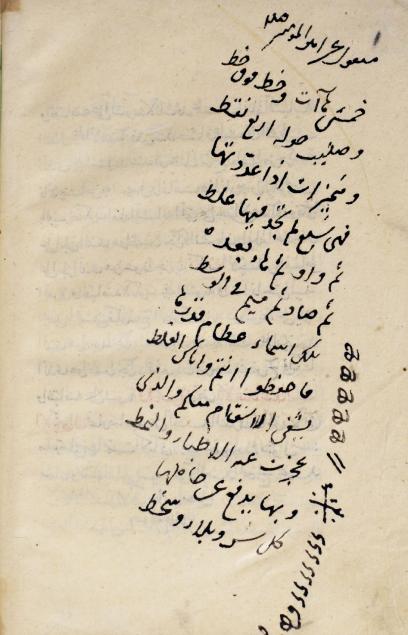 منقول عن امير المؤمنين
خمس هاآت وخط فوق خط
وصليب حوله اربع نقط
وهميزات اذا عددتها
فهى سبع لم تجد فيها غلط
ثم واو ثم هاء بعده
ثم صاد ثم ميم فى الوسط
تلك اسماء عظام قدرها
فاحفظوا انتم واياكم الغلط
يشفى الاسقام منكم والذى
عجزت عنه الاطبا والنمط
وبها يدفع عن حاملها
كل شر وبلاء وسخط
ه ه ه ه ه